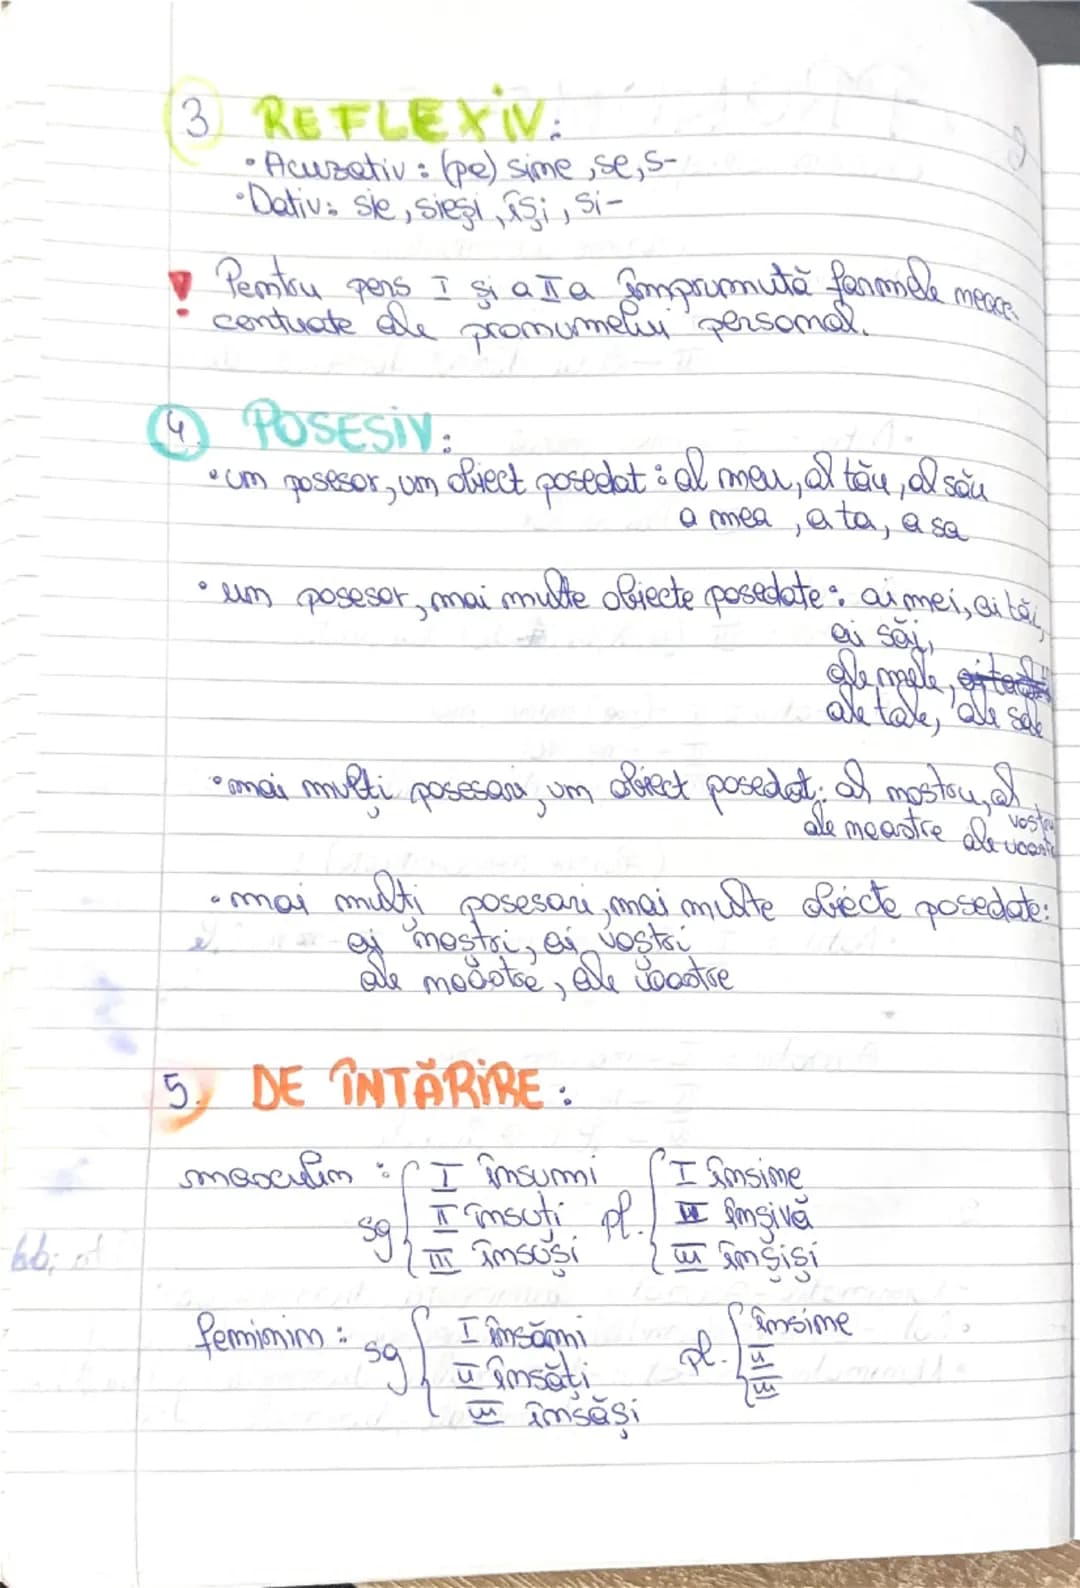 3 REFLEXIV:
• Acuzativ: (pe) sine, se, s-
• Dativ: sie, sieși, își, si-
! Pentru pers I și a II a împrumută formele neac-
centuate ale pronumelui personal.
4 POSESIV:
• un posesor, un obiect posedat: al meu, al tău, al său
a mea, a ta, a sa
• un posesor, mai multe obiecte posedate: ai mei, ai tăi,
ai săi,
ale mele,
ale tale, ale sale
• mai mulți posesori, un obiect posedat: al nostru, al
vostru
ale noastre ale voastre
• mai mulți posesori, mai multe obiecte posedate:
ai noștri, ai voștri
ale noastre, ale voastre
5. DE ÎNTĂRIRE:
masculin: sg { I însumi pl. { I însine
II însuți II însivă
III însuși III înșiși
feminin: sg { I însămi pl. { însine
II însăți II
III însăși III